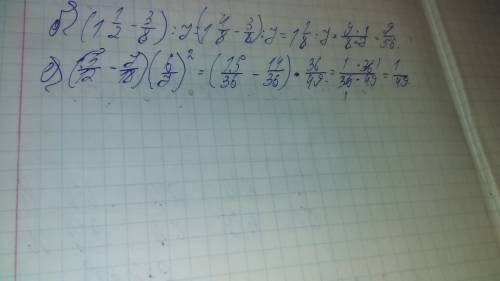 д) (1 1/2 - 3/8) : 7 = (1 4/8 - 3/8) : 7 = 1 1/8 : 7 = 9·1/8·7 = 9/56
е) (5/12 - 7/18) (6/7)² = (15/36 - 14/36) · 36/49 = 1·36/36·49 = 1/49